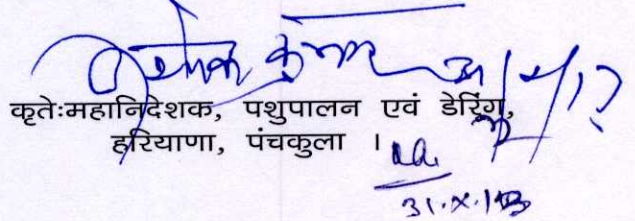 अशोक कुमार
कृतेःमहानिदेशक, पशुपालन एवं डेरिंग,
हरियाणा, पंचकुला ।
31.X.13